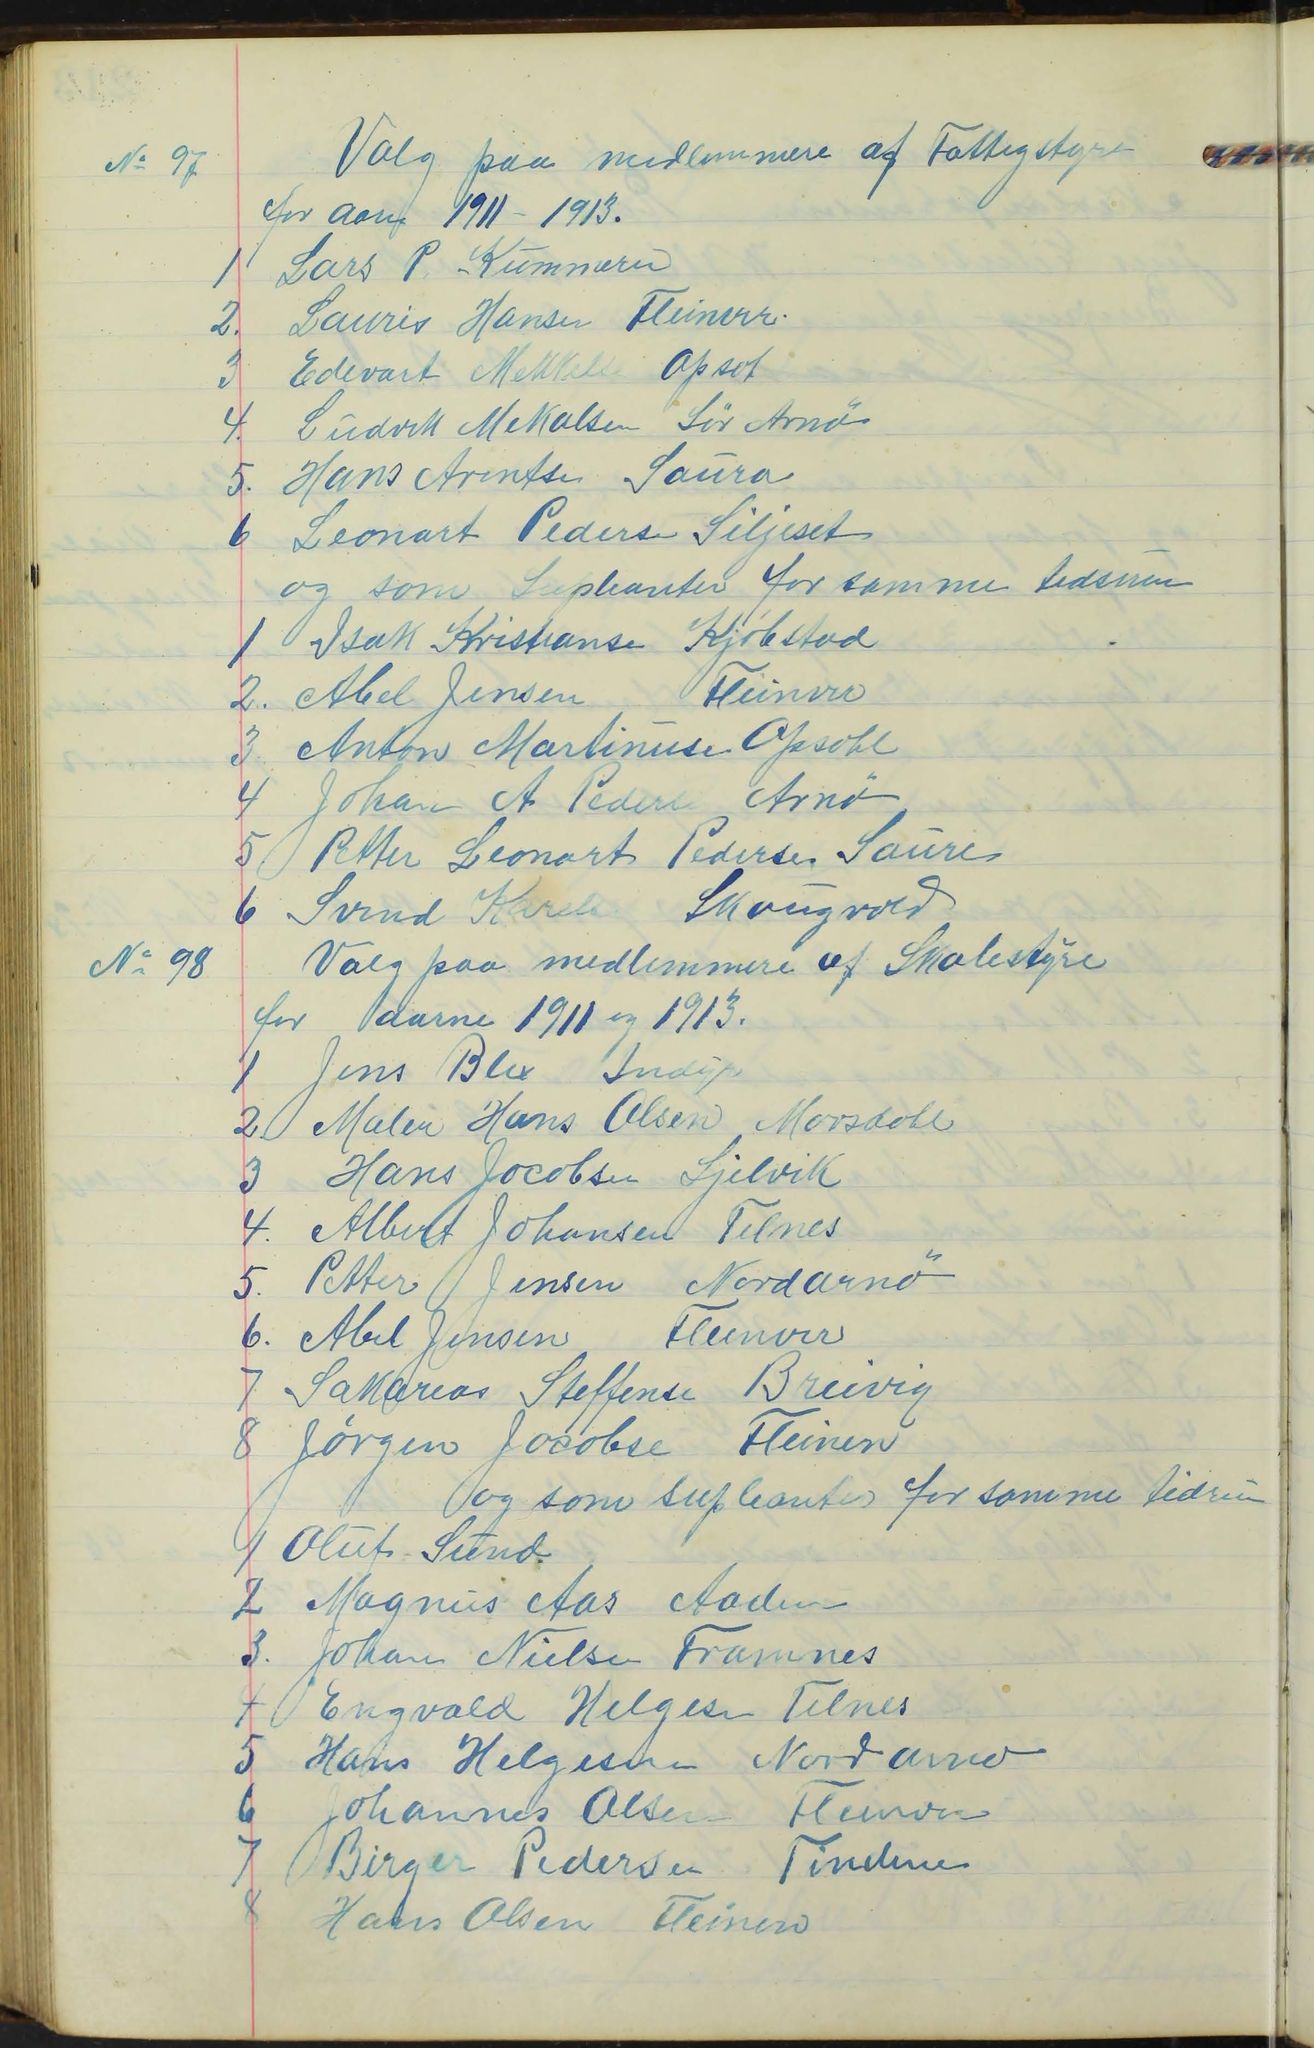 No 97 Valg paa medlemmere af Fattigstyre
for aarne 1911 - 1913.
1 Lars P. Kummeren
2. Lauris Hansen Fleinvær.
3 Edevart Mekkels Opsøl
4. Ludvik Mekalsen Sör Arnö
5. Hans Arentsen Saura
6 Leonart Pedersen Siljeset
og som Supleanter for samme tedsrum
1 Isak Kristiansen Kjöbstad
2. Abel Jensen Fleinvær
3 Anton Martinusen Opsahl
4 Johan A Peders Arnö
5 Petter Leonart Pedersen Saure
6 Svend Karels Skaugvold
No 98 Valg paa medlemmere af Skolestyre
for aarne 1911 og 1913.
1 Jens Blix Indyr
2. Maler Hans Olsen Morsdahl
3 Hans Jocobsen Sjelvik
4. Albert Johansen Telnes
5. Petter Jensen Nordarnö
6. Abel Jensen Fleinvær
7 Sakarias Steffensen Breivig
8 Jörgen Jocobse Fleinen
og som supleanter for samme tidrum
1 Oluf Sund.
2 Magnus Aas Aaden
3. Johan Nielsen Framnes
4 Engvald Helgesen Telnes
5 Hans Helgesen Nordarnø
6 Johannes Olsen Fleinvær
7 Birger Pedersen Tindene
8 Hans Olsen Fleinen